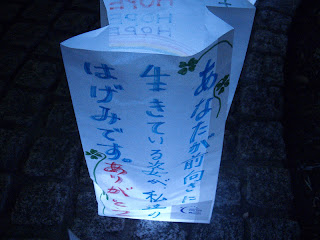 あなたが前向きに
生きている姿が 私達の
はげみです。ありがとう
HOPE
HOPE
HOPE